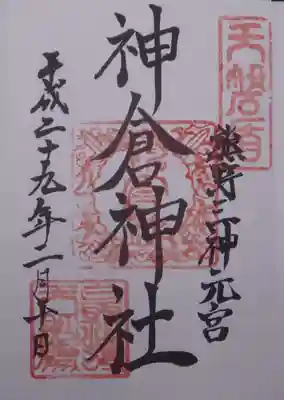 天磐盾
熊野三神元宮
神倉神社
平成二十九年二月日